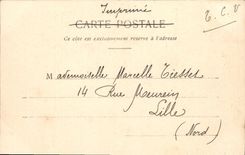 Imprimé
CARTE POSTALE
Ce côté est exclusivement réservé à l'adresse
T. C. V
Mademoiselle Marcelle Tiesset
14 Rue Meurein
Lille
(Nord)